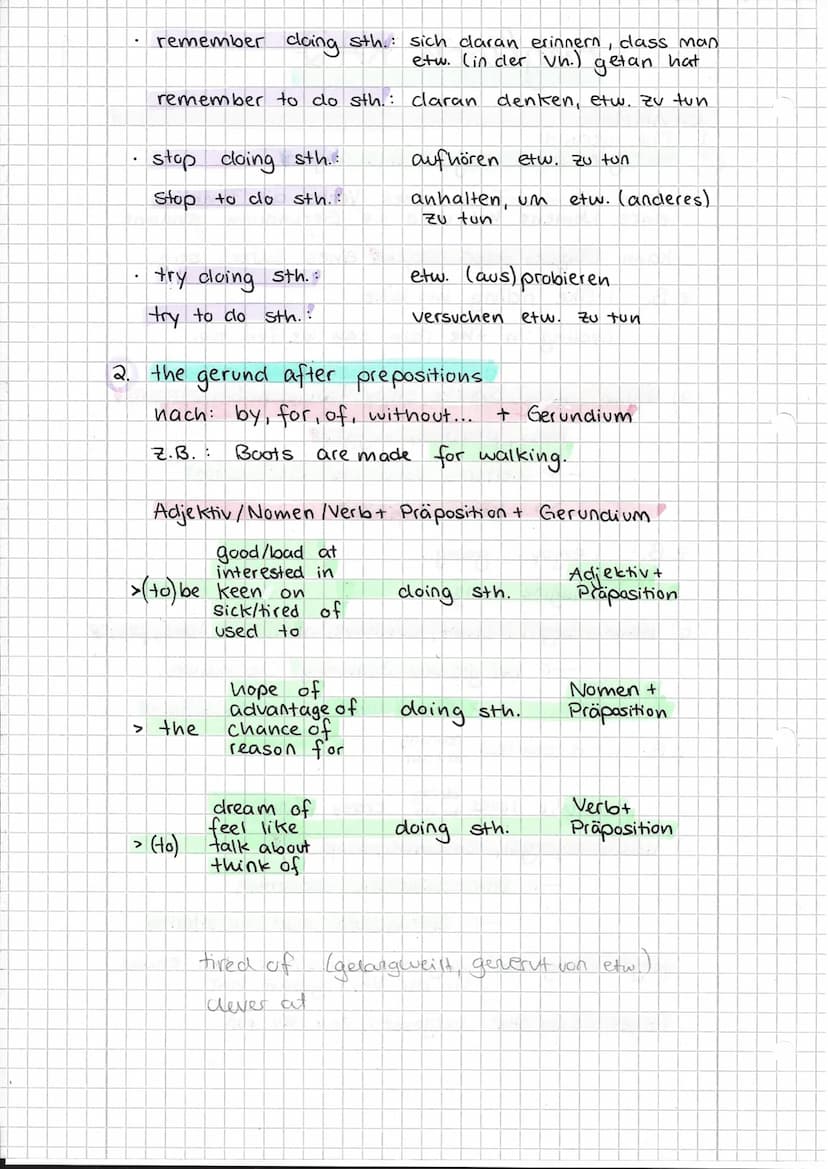 · remember doing sth.: sich daran erinnern, dass man
etw. (in der Vh.) getan hat
remember to do sth.: daran denken, etw. zu tun
· stop doing sth.: aufhören etw. zu tun
stop to do sth.: anhalten, um etw. (anderes)
zu tun
· try doing sth.: etw. (aus)probieren
try to do sth.: versuchen etw. zu tun
2. the gerund after prepositions
nach: by, for, of, without... + Gerundium
z.B.: Boots are made for walking.
Adjektiv/Nomen/Verb+ Präposition + Gerundium
good/bad at
interested in
>(to) be keen on doing sth. Adjektiv + Präposition
sick/tired of
used to
hope of
advantage of doing sth. Nomen + Präposition
> the chance of
reason for
dream of
feel like doing sth. Verb+ Präposition
> (to) talk about
think of
tired of (gelangweilt, genervt von etw.)
clever at